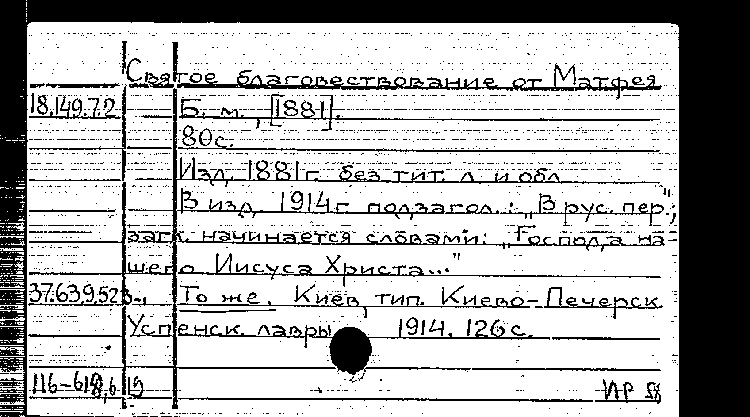 Святое благовествование от Матфея
18.149.7.2 Б. м., [1881].
80с.
Изд. 1881г. без тит. л. и обл.
В изд. 1914г. подзагол.: „В рус. пер.";
загл. начинается словами: „Господа на-
шего Иисуса Христа..."
37.63.9.523. То же. Киев, тип. Киево-Печерск.
Успенск. лавры, 1914. 126с.
116-618,6 19 ИР